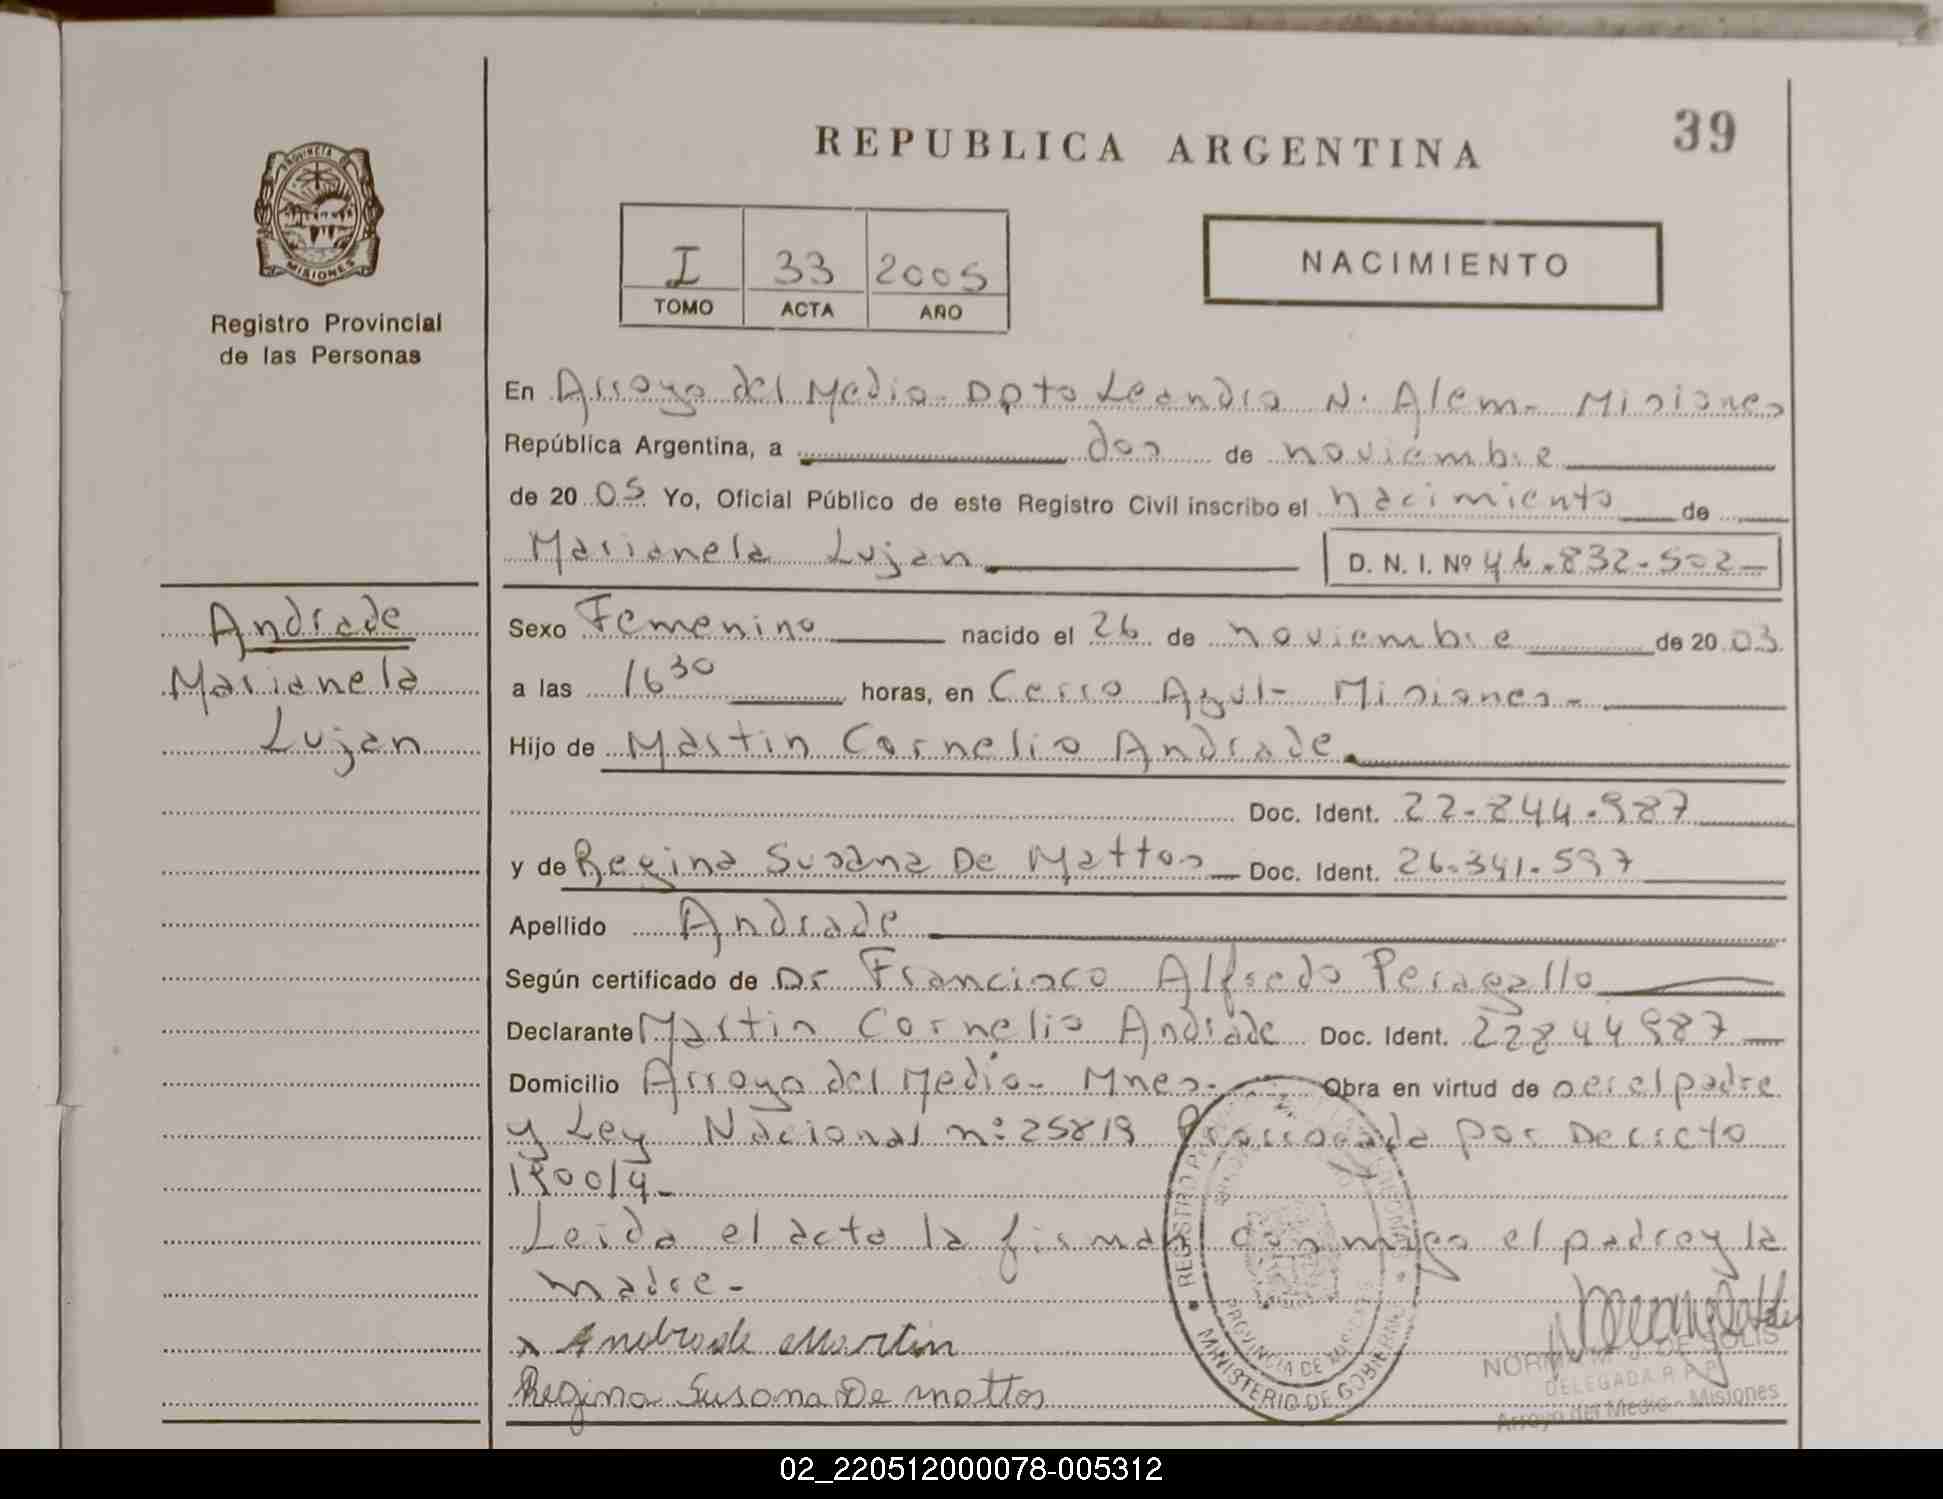 REPUBLICA ARGENTINA
39
PROVINCIA DE
MISIONES
Registro Provincial
de las Personas
I 33 2005
TOMO ACTA AÑO
NACIMIENTO
En Arroyo del Medio - Dpto Leandro N. Alem - Misiones
República Argentina, a dos de noviembre
de 20 05 Yo, Oficial Público de este Registro Civil inscribo el nacimiento de
Marianela Lujan D. N. I. Nº 46.832.502-
Andrade
Marianela
Lujan
Sexo Femenino nacido el 26 de noviembre de 20 03
a las 16 30 horas, en Cerro Azul - Misiones -
Hijo de Martin Cornelio Andrade
Doc. Ident. 22.844.987
y de Regina Susana De Mattos Doc. Ident. 26.341.597
Apellido Andrade
Según certificado de Dr Francisco Alfredo Peragallo
Declarante Martin Cornelio Andrade Doc. Ident. 22844987
Domicilio Arroyo del Medio - Mnes. Obra en virtud de ser el padre
y Ley Nacional nº 25819 Prorrogada por Decreto
1900/4 -
Leida el acta la firman conmigo el padre y la
madre -
x Andrade Martin
Regina Susana De mattos
REGISTRO
MINISTERIO DE GOBIERNO
PROVINCIA DE MISIONES
NORMA DE SOLIS
DELEGADA R.P.P.
Arroyo del Medio - Misiones
02_220512000078-005312